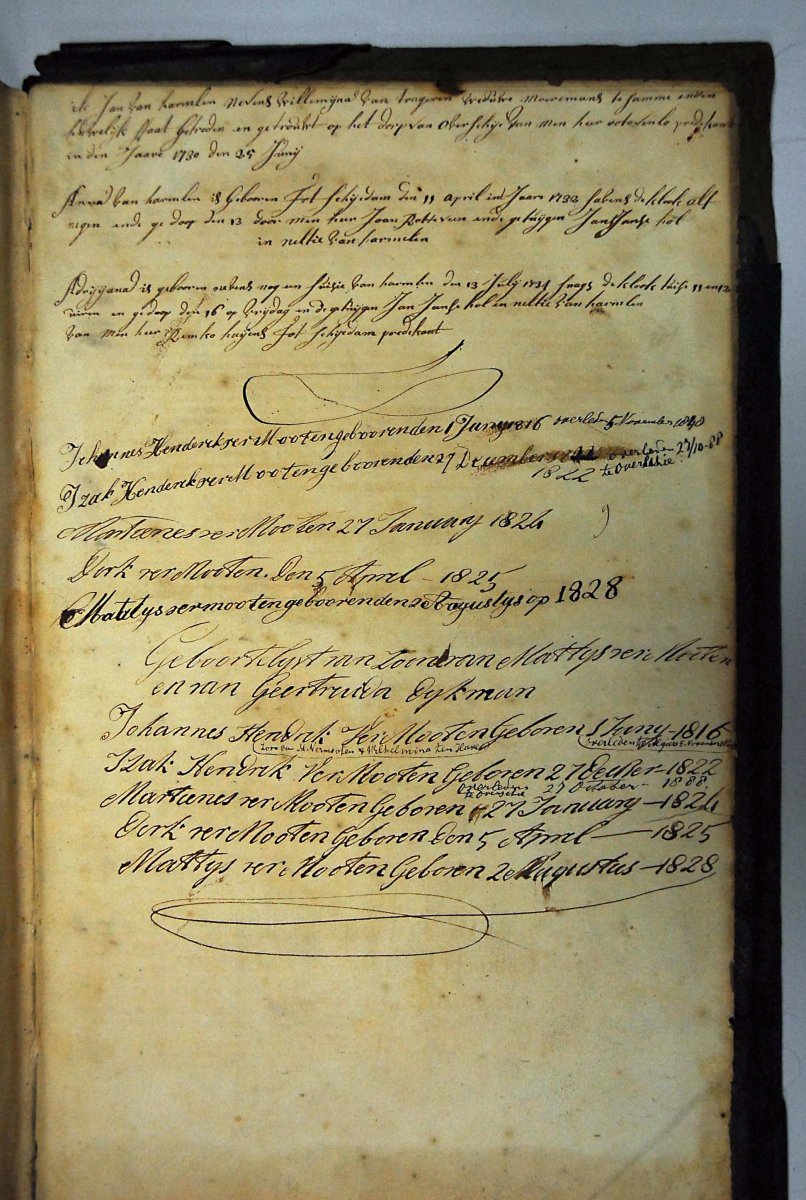 ik Jan van harmelen nevens Willemijna van tongeren weduwe moermans te samme in den
houwelijk staat getreden en getrouwt op het dorp van Overschije van men heer predikant
in den Jaare 1730 den 25 Junij
Anna van harmelen is gebooren tot Schijedam den 11 april int Jaare 1732 savens de klock alf
negen ende gedop den 13 door men heer Joan ende getuijgen Jan Janse kol
in neltie van harmelen
Adrijana is gebooren nevens nog een van harmelen den 13 Julij 1734 snags de klock tuse 11 en 12
uuren en gedop den 16 op vrijdag ende getuijgen Jan Janse kol in neltie van harmelen
van men heer tot Schijedam predikant
Johannes Henderck ver Mooten gebooren den 1 Juny 1816 overleden 5 November 1840
Izak Henderck ver Mooten gebooren den 27 December 1822 overleden 27/10-88
1822 te Overschie
Martienes ver Mooten 27 January 1824
Dirk ver Mooten. Den 5 April - 1825
Matthys vermooten gebooren den 2e Agustys op 1828
Geboortelyst van zoone van Mattys ver Mooten
en van Geertruida Dykman
Johannes Hendrik Ver Mooten Geboren 1 Juny - 1816
zoon van M. Vermooten & Wilhelmina ten Harve overleden 5 November
Izak Hendrik Ver Mooten Geboren 27 Decber - 1822
Overleden te Overschie 27 October - 1888.
Martienes ver Mooten Geboren 27 January - 1824
Dirk ver Mooten Geboren Den 5 April - 1825
Mattys ver Mooten Geboren 2e Augustus - 1828